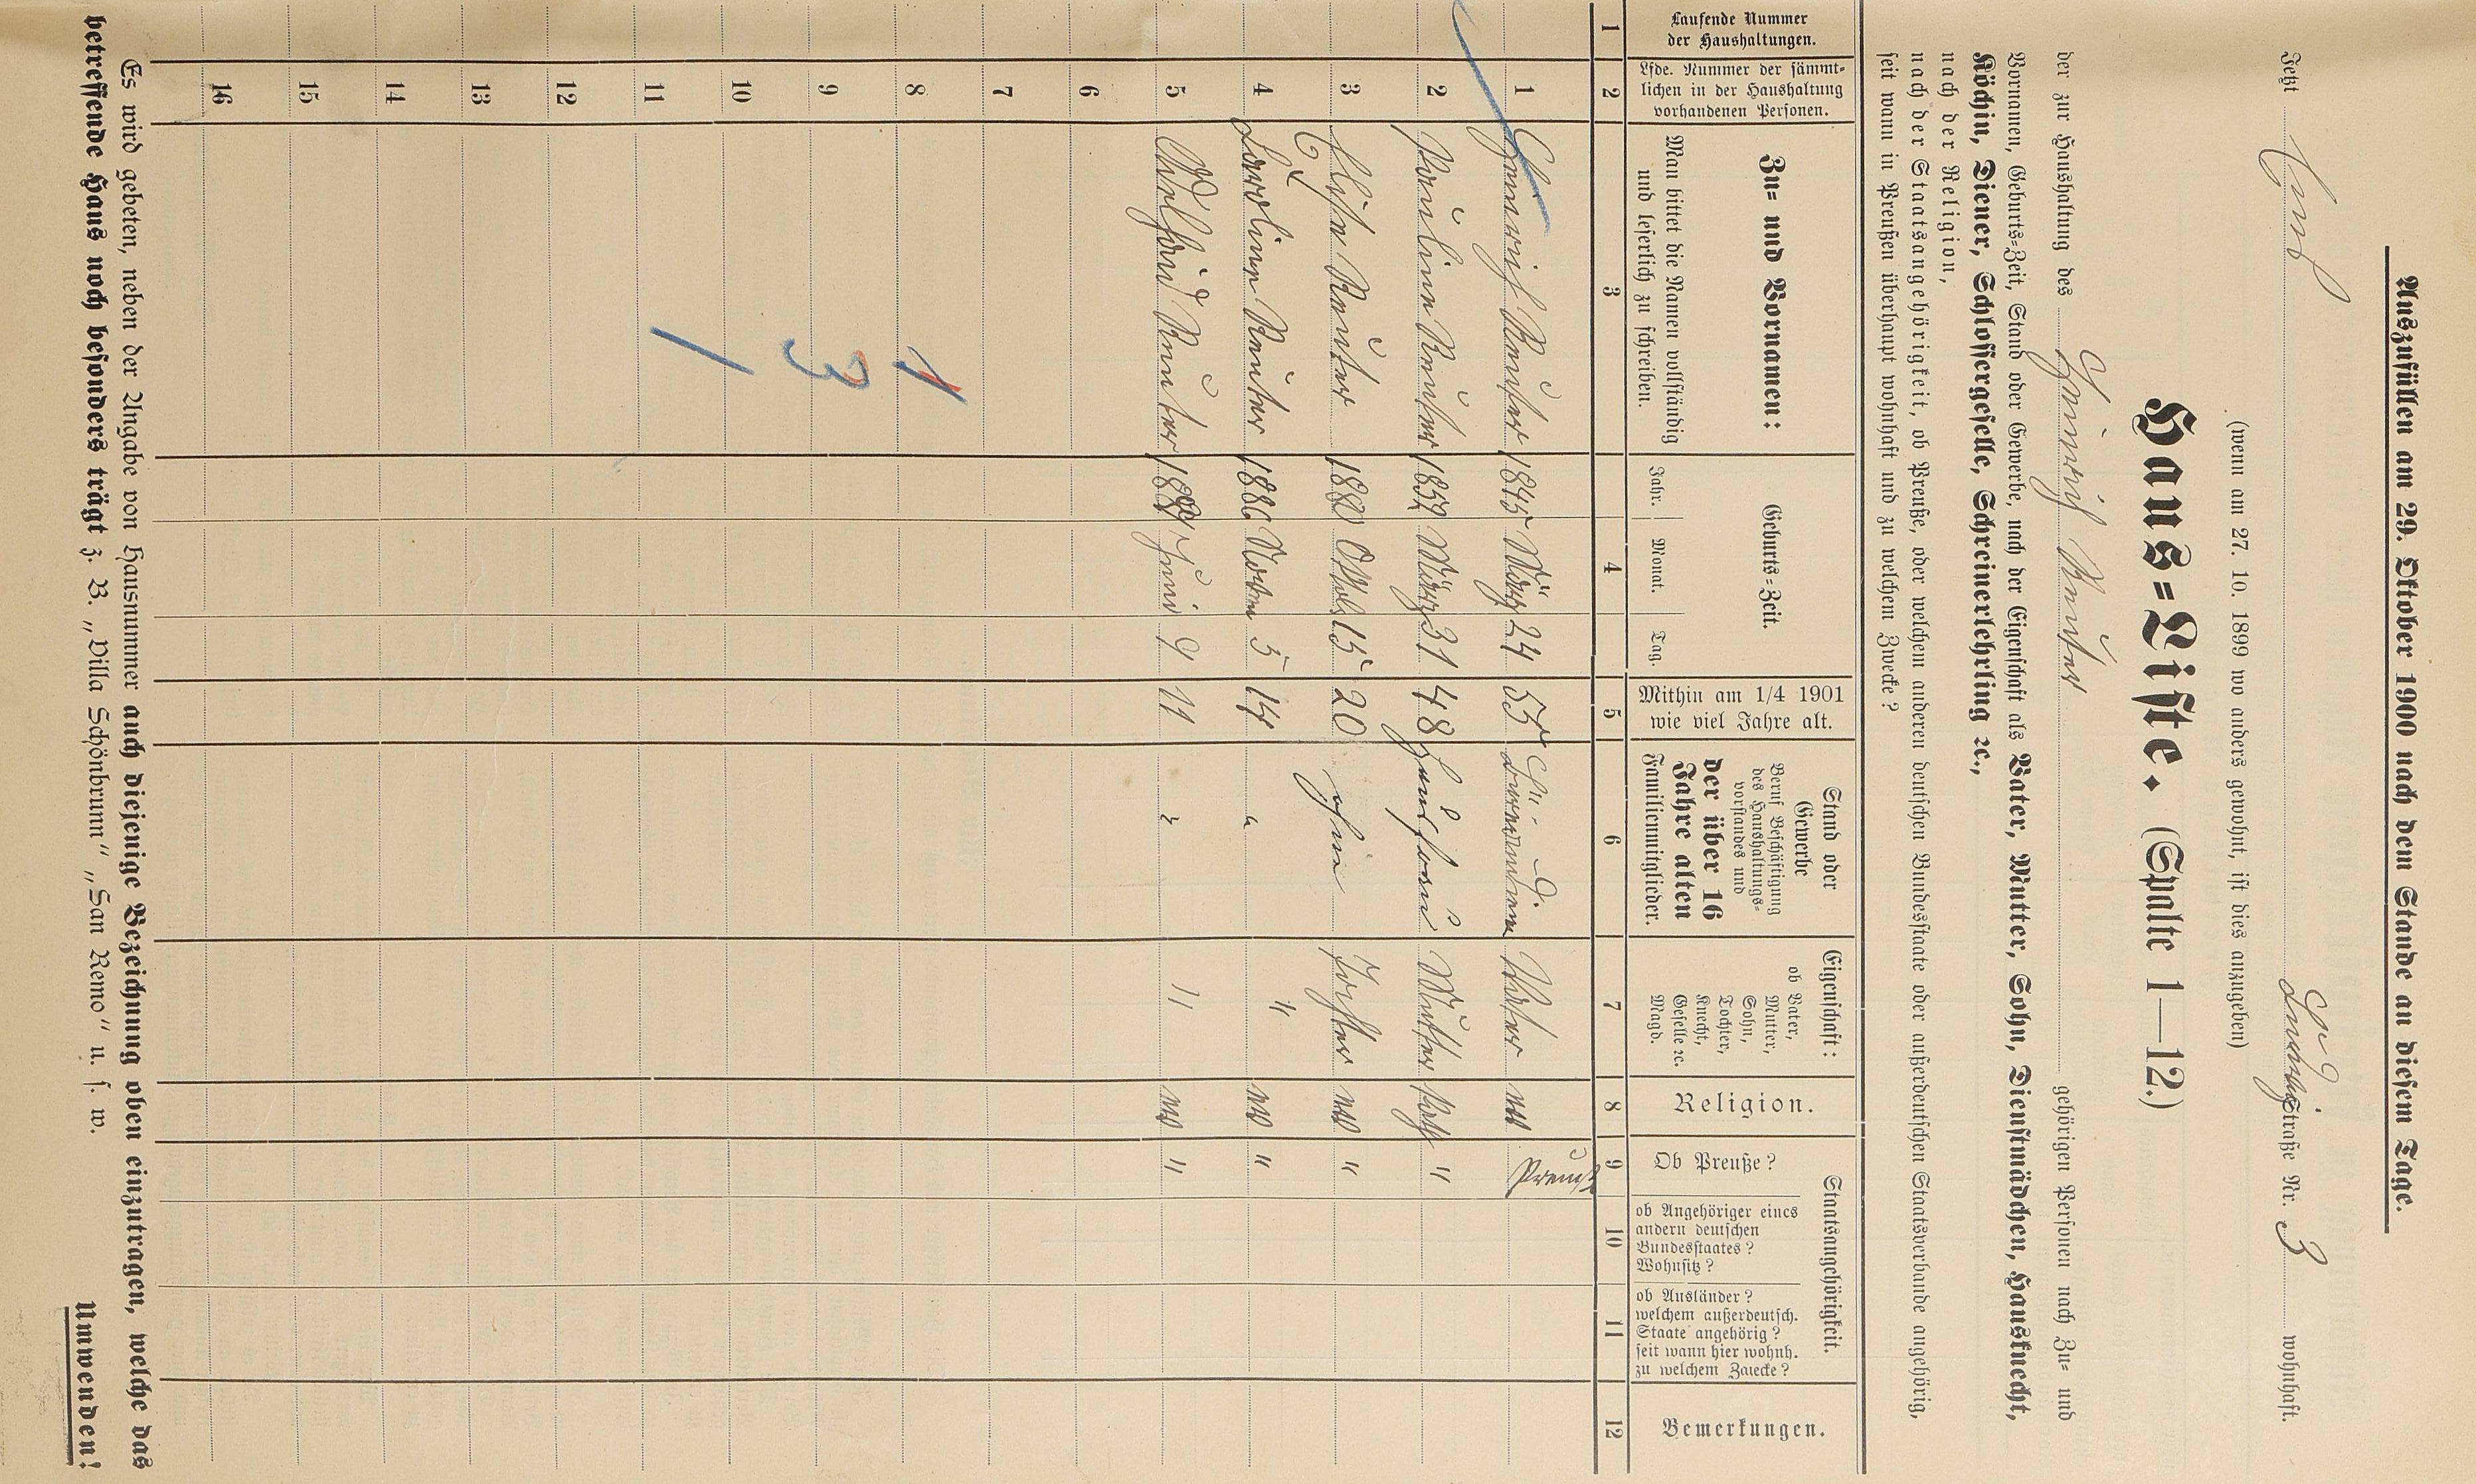 Auszufüllen am 29. Oktober 1900 nach dem Stande an diesem Tage.
Jetzt Ems Straße Nr. 3 wohnhaft.
(wenn am 27. 10. 1899 wo anders gewohnt, ist dies anzugeben)
Haus=Liste. (Spalte 1—12.)
der zur Haushaltung des Heinrich Reuter gehörigen Personen nach Zu= und
Vornamen, Geburts=Zeit, Stand oder Gewerbe, nach der Eigenschaft als Vater, Mutter, Sohn, Dienstmädchen, Hausknecht,
Köchin, Diener, Schlossergeselle, Schreinerlehrling ꝛc.,
nach der Religion,
nach der Staatsangehörigkeit, ob Preuße, oder welchem anderen deutschen Bundesstaate oder außerdeutschen Staatsverbande angehörig,
seit wann in Preußen überhaupt wohnhaft und zu welchem Zwecke?
Laufende Nummer der Haushaltungen.
Lfde. Nummer der sämmt=lichen in der Haushaltung vorhandenen Personen.
Zu= und Vornamen:
Man bittet die Namen vollständig und leserlich zu schreiben.
Geburts=Zeit.
Jahr. Monat. Tag.
Mithin am 1/4 1901 wie viel Jahre alt.
Stand oder Gewerbe
Beruf Beschäftigung des Haushaltungs=vorstandes und
der über 16 Jahre alten
Familienmitglieder.
Eigenschaft:
ob Vater, Mutter, Sohn, Tochter, Knecht, Geselle ꝛc. Magd.
Religion.
Staatsangehörigkeit.
Ob Preuße?
ob Angehöriger eines andern deutschen Bundesstaates? Wohnsitz?
ob Ausländer? welchem außerdeutsch. Staate angehörig? seit wann hier wohnh. zu welchem Zwecke?
Bemerkungen.
1 2 3 4 5 6 7 8 9 10 11 12
1 Heinrich Reuter 1845 März 24 55 Vater Preuß
2 Pauline Reuter 1852 März 31 48 Hausfrau Mutter "
3 Elise Reuter 1880 Oktob 15 20 ohne Tochter "
4 Karoline Reuter 1886 Novem 5 14 " " "
5 Reuter Juni 9 11 " " "
6
7
8 1
9 3
10 /
11
12
13
14
15
16
Es wird gebeten, neben der Angabe von Hausnummer auch diejenige Bezeichnung oben einzutragen, welche das
betreffende Haus noch besonders trägt z. B. „Villa Schönbrunn“ „San Remo“ u. s. w.
Umwenden!